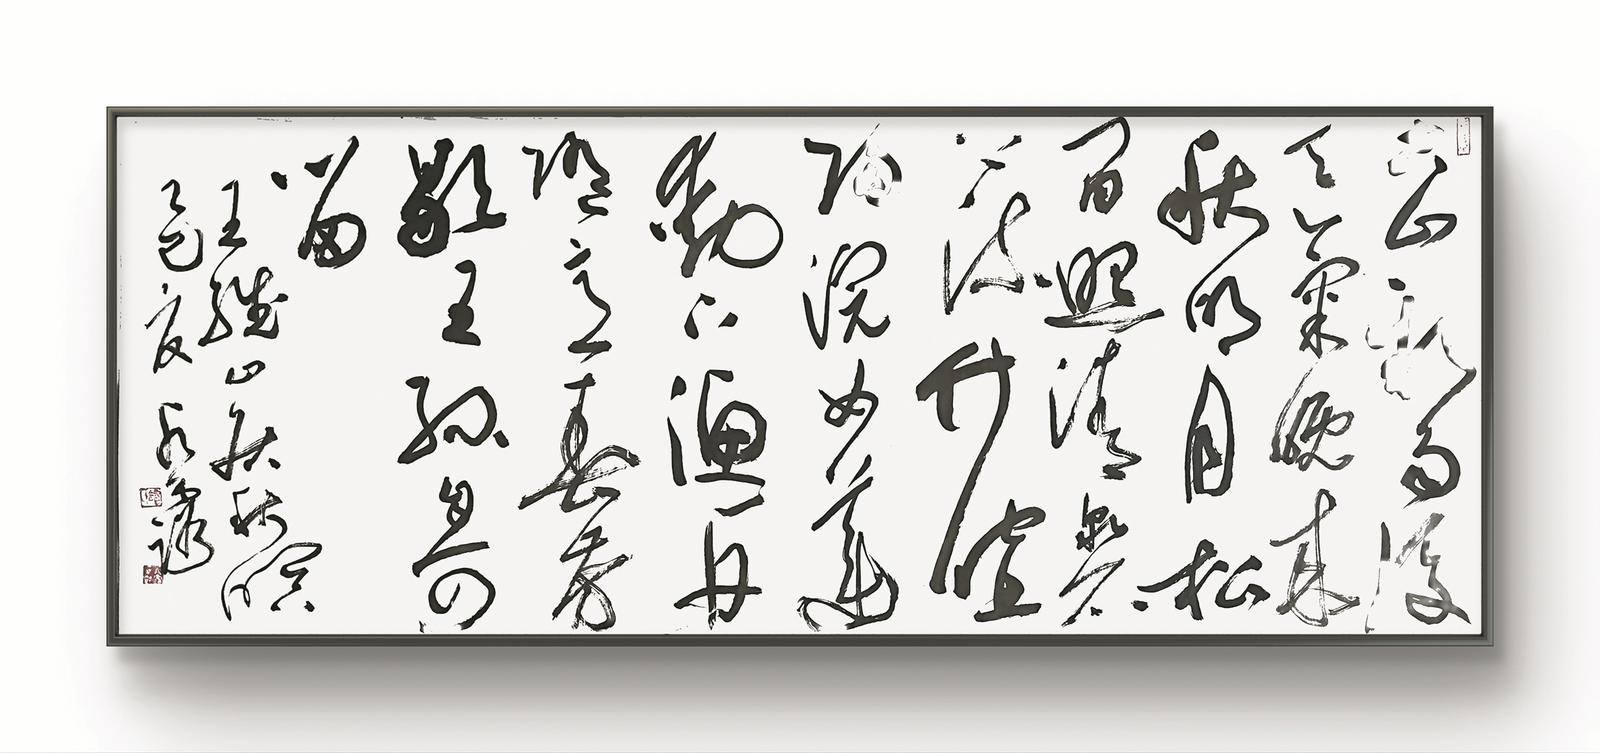 空山新雨後
天氣晚來
秋明月松
間照清泉石
上流竹喧
歸浣女蓮
動下漁舟
隨意春芳
歇王孫自可
留
王維山居秋暝
乙巳夏